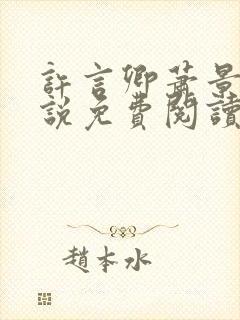 許言卿蕭景
說免費閱讀
趙本水